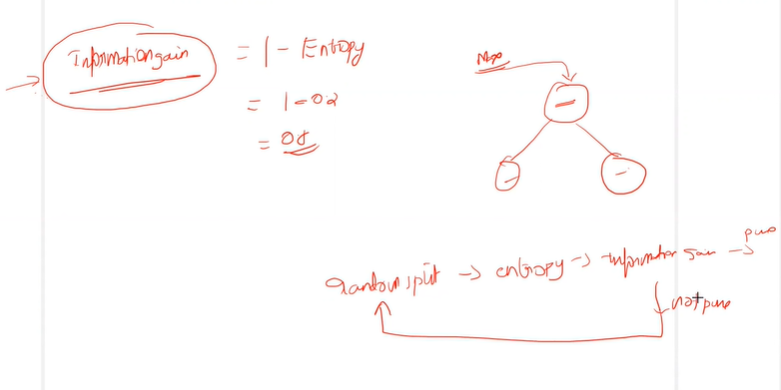 Informationgain = 1 - Entropy
= 1-02
= 08
Max
random split -> entropy -> information gain -> pure
not pure